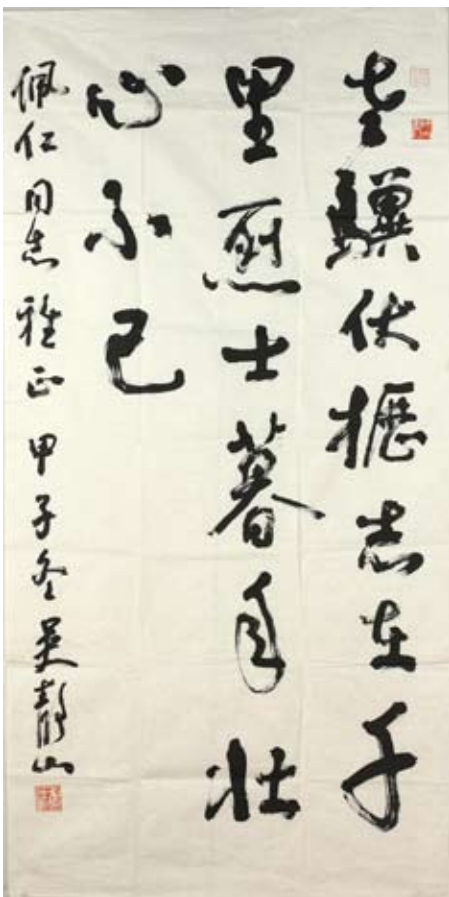 老驥伏櫪志在千
里烈士暮年壯
心不已
佩仁同志雅正 甲子冬 吴山